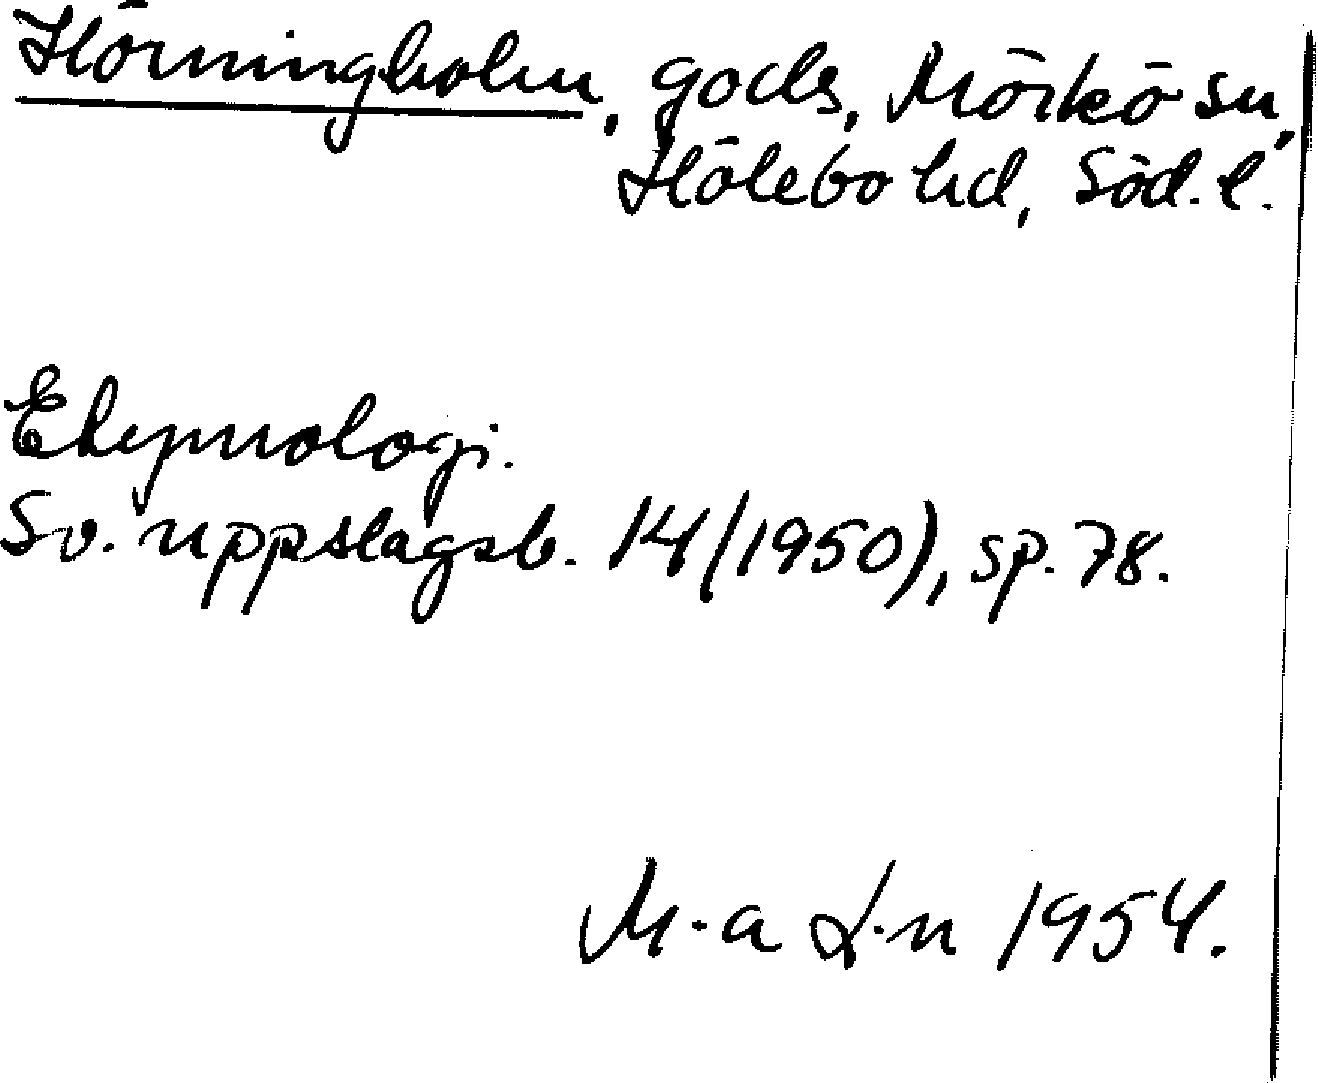 Hörningholm, gods, Mörkö sn,
Hölebo hd, Söd. l.
Etymologi.
Sv. uppslagsb. 14 (1950), sp. 78.
M-a L-n 1954.